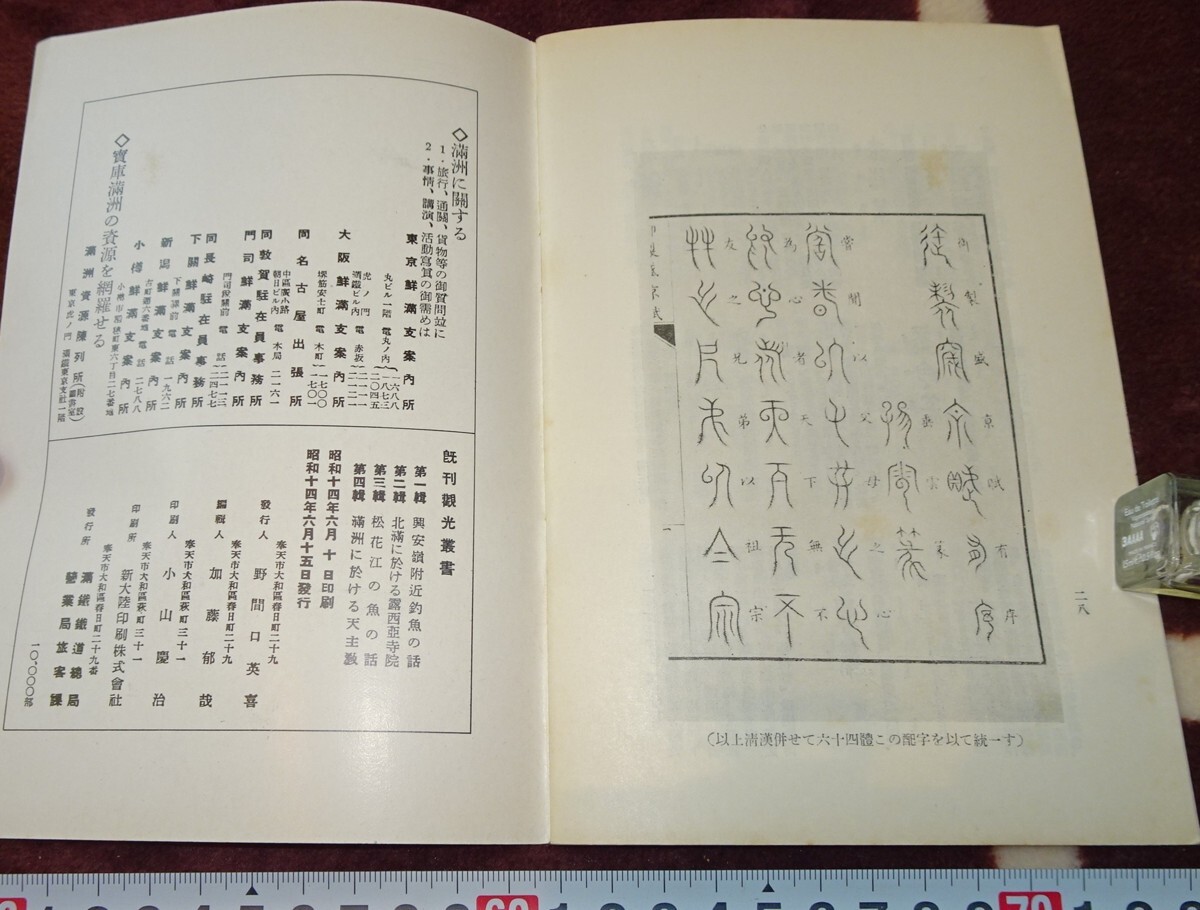 御製盛京賦有序
垂露篆
嘗聞以父母之心
為心者天下無不
友之兄弟以祖宗
二八
(以上清漢併せて六十四體この配字を以て統一す)
◇滿洲に關する
1．旅行、通關、貨物等の御質問竝に
2．事情、講演、活動寫眞の御需めは
東京鮮滿支案内所
丸ビル一階 電丸ノ内
虎ノ門
滿鐵ビル内 電 赤坂
大阪鮮滿支案内所
堺筋安土町 電 本町
同名古屋出張所
中區廣小路
朝日ビル内 電 本局 二一六一
同敦賀駐在員事務所
門司鮮滿支案内所
同長崎駐在員事務所
下關鮮滿支案内所
下關驛前 電話 一九六二
新潟鮮滿支案内所
小樽鮮滿支案内所
◇寶庫滿洲の資源を網羅せる
滿洲資源陳列所
東京虎ノ門 滿鐵東京支社一階
既刊觀光叢書
第一輯 興安嶺附近釣魚の話
第二輯 北滿に於ける露西亞寺院
第三輯 松花江の魚の話
第四輯 滿洲に於ける天主教
昭和十四年六月十日印刷
昭和十四年六月十五日發行
奉天市大和區春日町二十九
發行人 野間口英喜
奉天市大和區春日町二十九
編輯人 加藤郁哉
奉天市大和區萩町三十一
印刷人 小山慶治
奉天市大和區萩町三十一
印刷所 新大陸印刷株式會社
奉天市大和區春日町二十九番
發行所 滿鐵鐵道總局
營業局旅客課
一〇,〇〇〇部